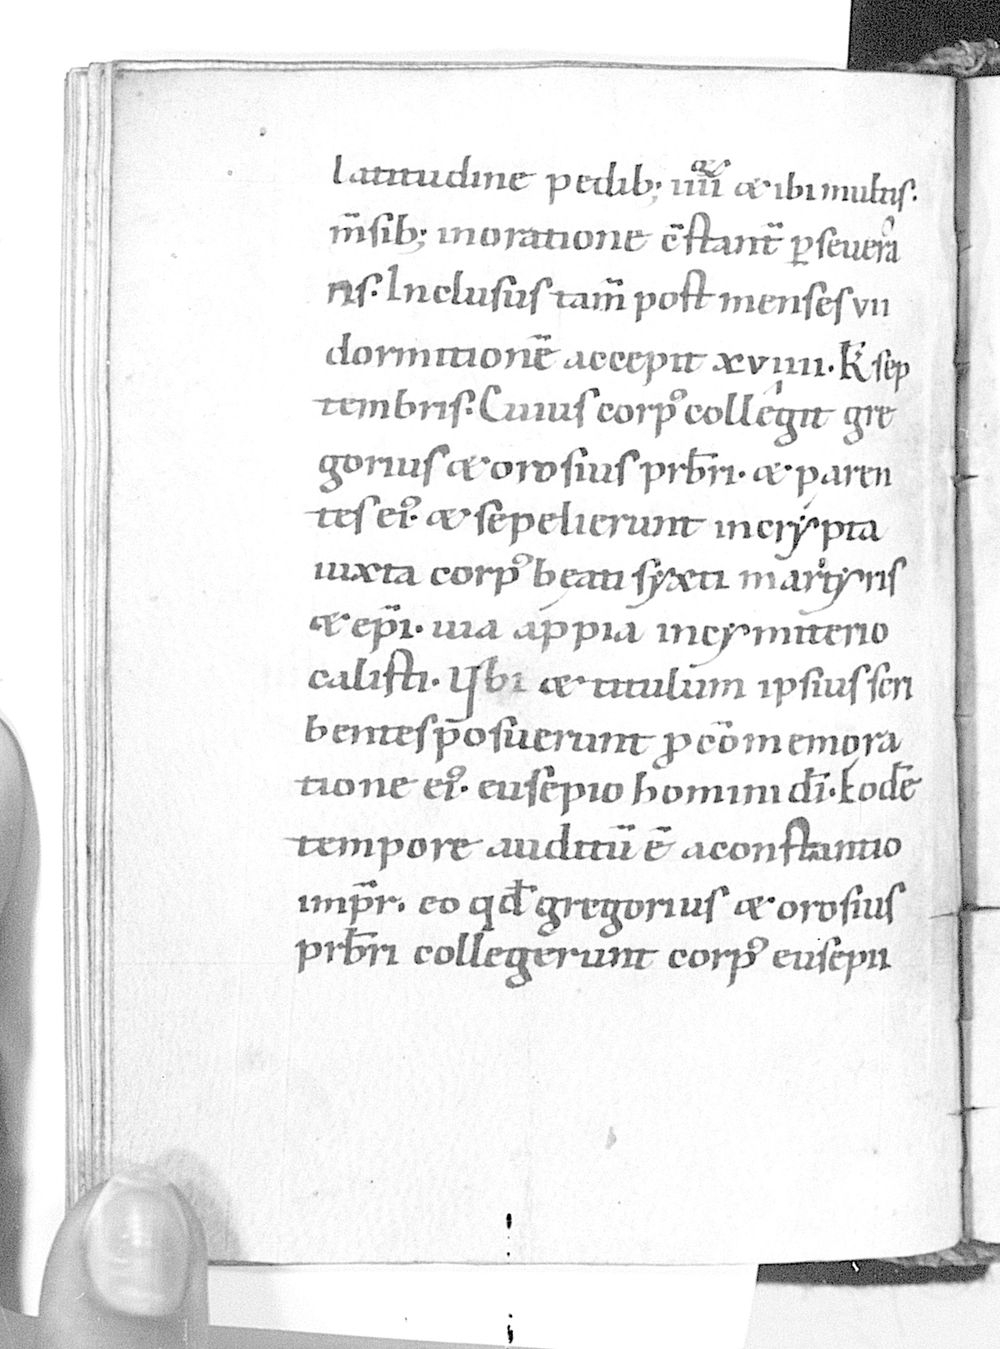 latitudine pedib; iiii^or & ibi multis.
m̅sib; inoratione c̅stant̅ ꝑseuera
ns. Inclusus tam̅ post menses vii
dormitione̅ accepit xviiii. k̅ sep
tembris. Cuius corpꝰ collegit gre
gorius & orosius prb̅ri. & paren
tes eiꝰ. & sepelierunt incrypta
iuxta corpꝰ beati syxti martyris
& ep̅i. uia appia incymiterio
calisti. Ybi & titulum ipsius scri
bentes p̅osuerunt ꝓ co̅memora
tione eiꝰ. eusepio homini dı̅. Eode̅
tempore auditu̅ e̅ aconstantio
imp̅r. eo qd̅ gregorius & orosius
prb̅ri collegerunt corpꝰ eusepii